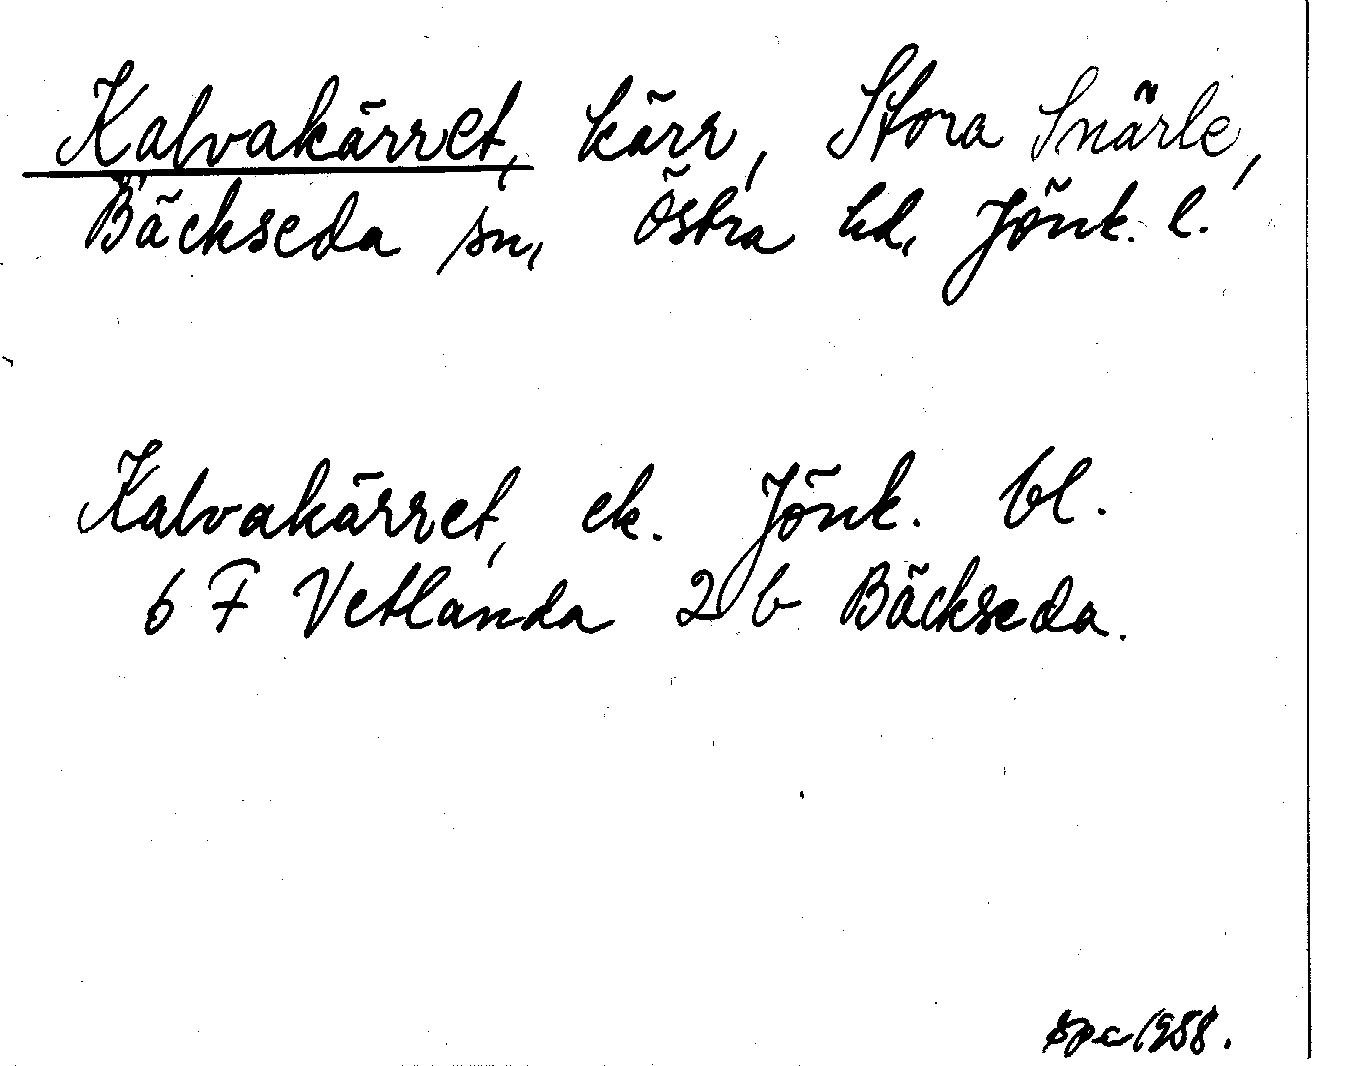 Kalvakärret, kärr, Stora Snärle,
Bäckseda sn, Östra hd, Jönk. l.
Kalvakärret, ek. Jönk. bl.
6 F Vetlanda 2 b Bäckseda.
1958.